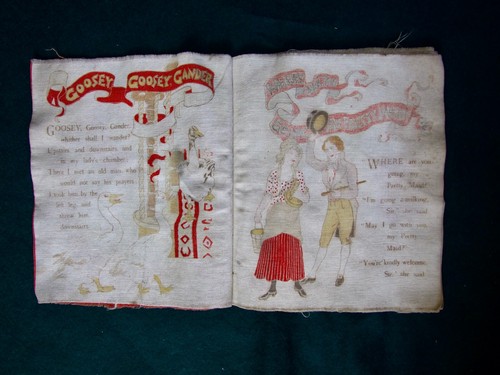 GOOSEY, GOOSEY, GANDER
GOOSEY, Goosey, Gander,
whither shall I wander?
Upstairs and downstairs and
in my lady's chamber.
There I met an old man who
would not say his prayers
I took him by the
left leg, and
threw him
downstairs.
WHERE are you
going, my
Pretty Maid?
"I'm going a-milking,
Sir," she said
"May I go with you,
my Pretty
Maid?"
"You're kindly welcome,
Sir," she said